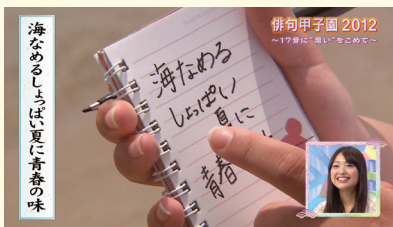 海なめるしょっぱい夏に青春の味
俳句甲子園2012
～17音に"思い"をこめて～
海なめる
しょっぱい
夏に
青春